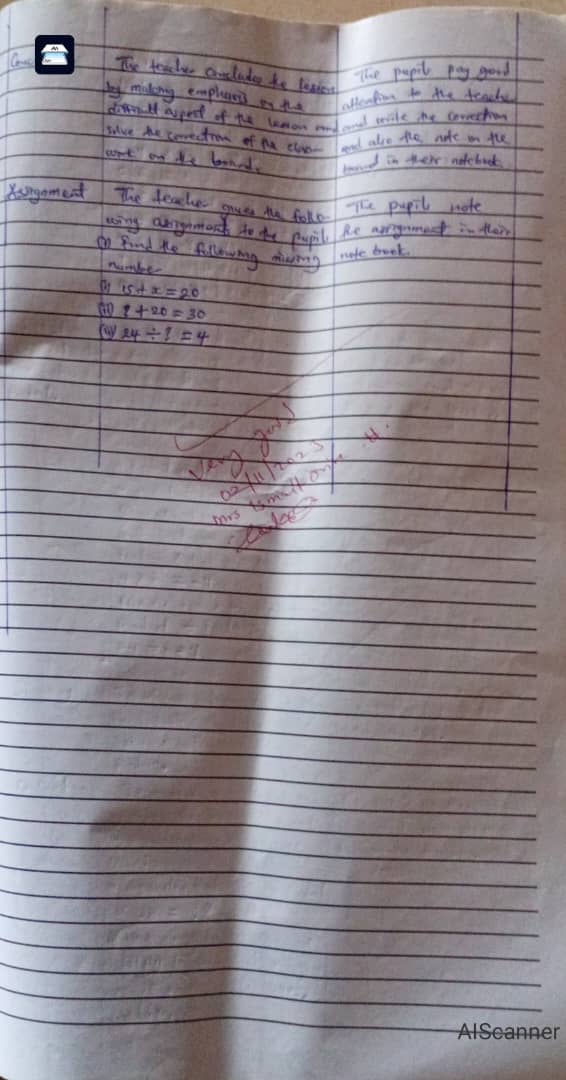 Conc
The teacher concludes the lesson
by making emphasis on the
difficult aspect of the lesson and
solve the correction of the class
work on the board.
The pupil pay good
attention to the teacher
and write the correction
and also the note on the
board in their notebook
Assignment
The teacher gives the follo-
wing assignment to the pupil
(1) Find the following missing
number
(i) 15 + x = 20
(ii) ? + 20 = 30
24 ÷ ? = 4
The pupil note
the assignment in their
note book.
Very good
02/11/2023
Mrs Ismail
AIScanner